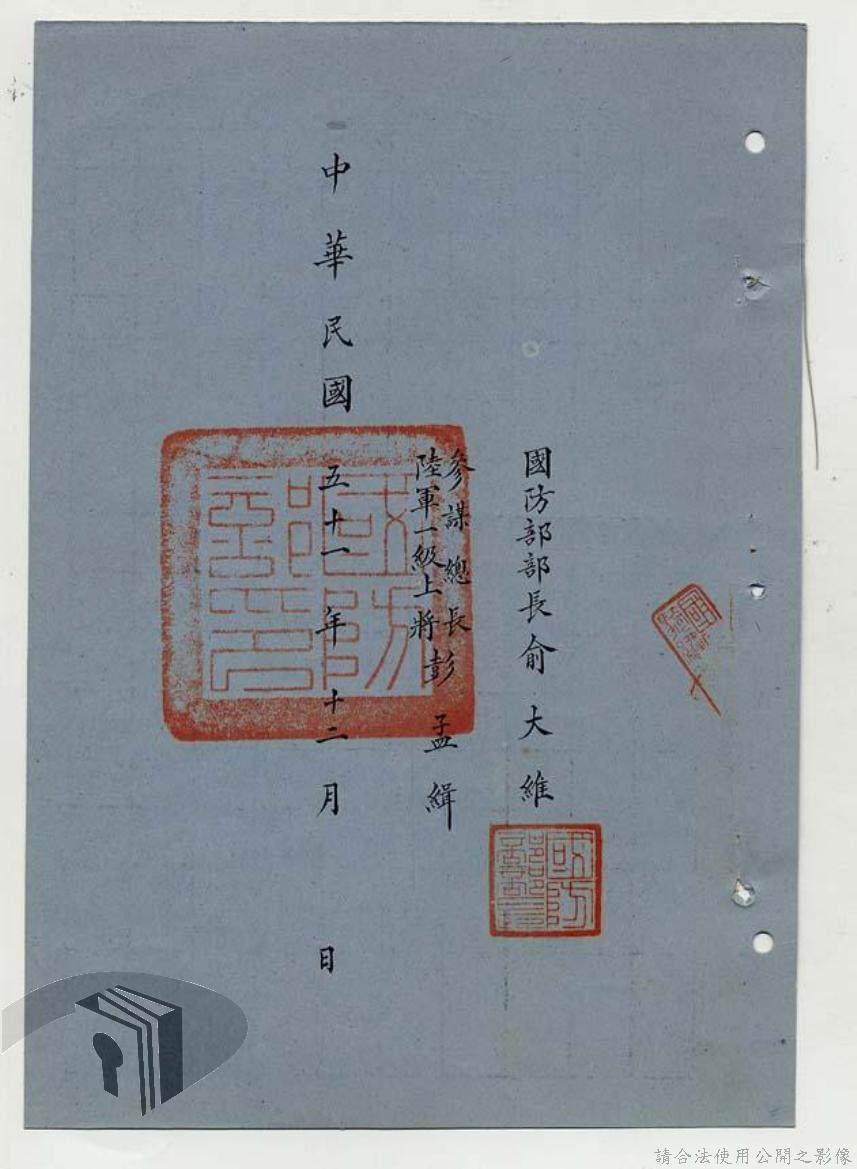 國防部部長俞大維
參謀總長
陸軍一級上將彭孟緝
中華民國五十一年十二月 日
國防部印
請合法使用公開之影像